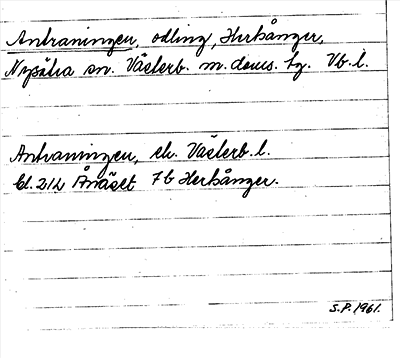 Antraningen, odling, Herrånger,
Nysätra sn. Västerb. m. doms. tg. Vb. l.
Antraningen, ek. Västerb. l.
bl. 212 Ånäset 7b Herrånger.
S.P. 1961.